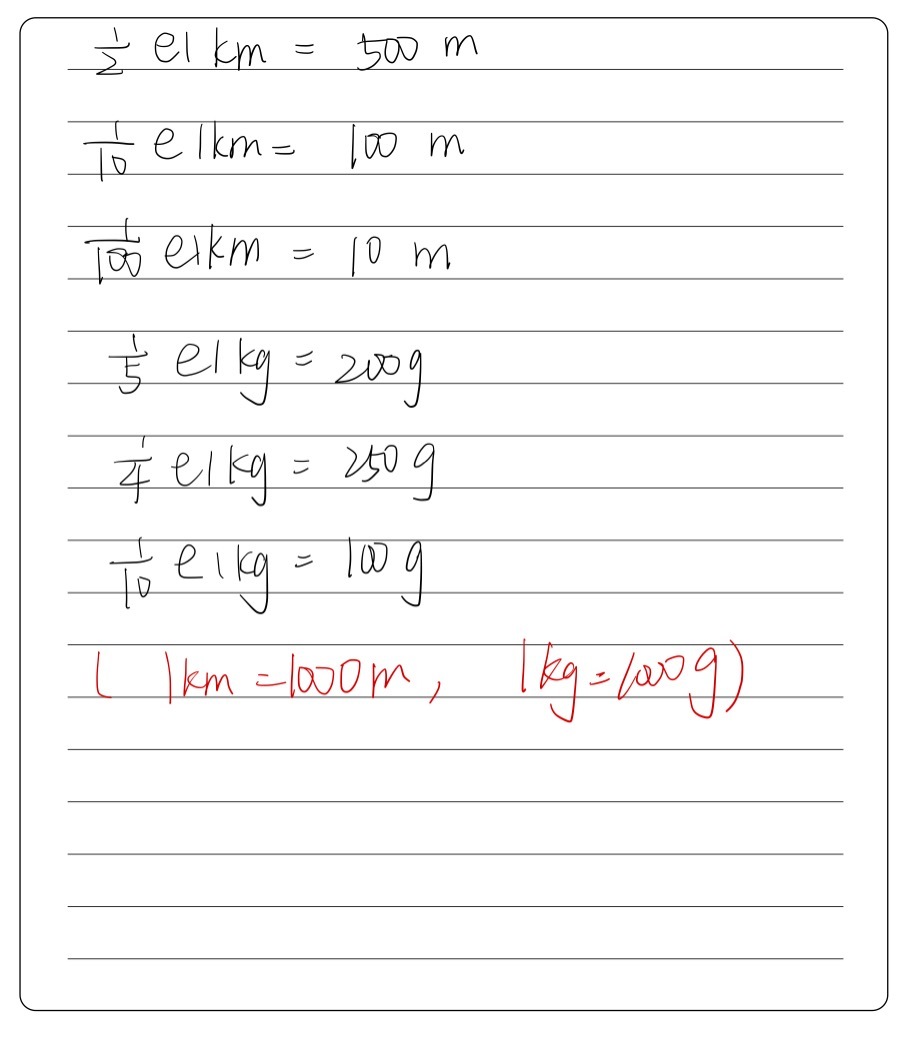 1/2 el km = 500 m
1/10 el km = 100 m
1/100 el km = 10 m
1/5 el kg = 200g
1/4 el kg = 250 g
1/10 el kg = 100 g
( 1km = 1000 m, 1kg = 1000 g)